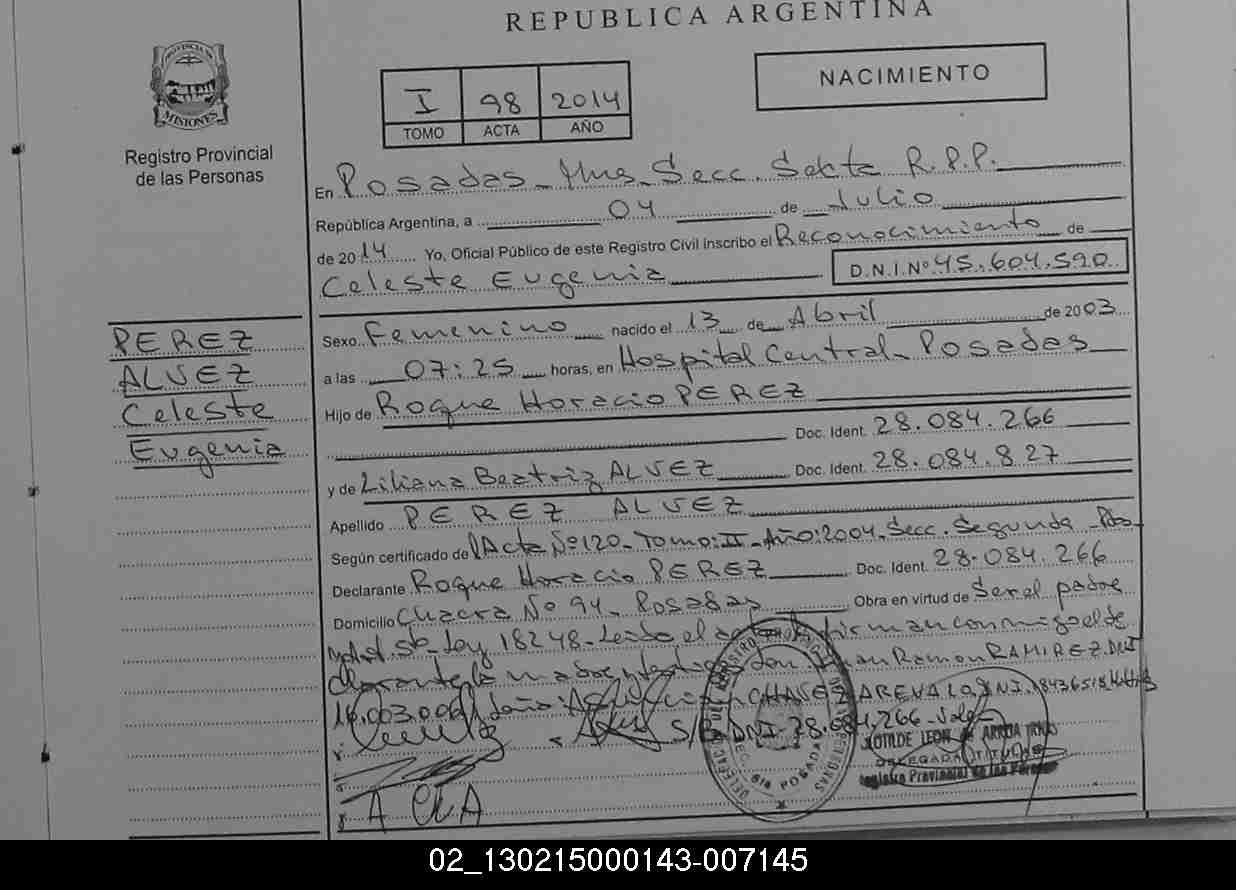 REPUBLICA ARGENTINA
PROVINCIA DE
MISIONES
Registro Provincial
de las Personas
I 98 2014
TOMO ACTA AÑO
NACIMIENTO
En Posadas - Mnes - Secc. Sexta R.P.P.
República Argentina, a 04 de Julio
de 2014 Yo, Oficial Público de este Registro Civil inscribo el Reconocimiento de
Celeste Eugenia D.N.I. Nº 45.604.590
PEREZ
ALVEZ
Celeste
Eugenia
Sexo Femenino nacido el 13 de Abril de 2003
a las 07:25 horas, en Hospital Central - Posadas
Hijo de Roque Horacio PEREZ
Doc. Ident. 28.084.266
y de Liliana Beatriz ALVEZ Doc. Ident. 28.084.827
Apellido PEREZ ALVEZ
Según certificado de Acta Nº 120 - Tomo: II - Año: 2004 - Secc. Segunda - Pdas
Declarante Roque Horacio PEREZ Doc. Ident. 28.084.266
Domicilio Chacra Nº 94 - Posadas Obra en virtud de Ser el padre
Ley 18248 - Leido el acta la firman conmigo el de
clarante la madre Juan Ramon RAMIREZ DNI
16.003.006 CHAVEZ AREVALO DNI. 18436518
S/B DNI - 28.084.266 - Vale
DELEGADA TITULAR
Registro Provincial de las Personas
POSADAS
02_130215000143-007145